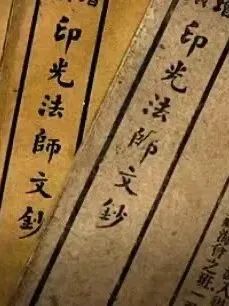 印光法師文鈔
印光法師文鈔